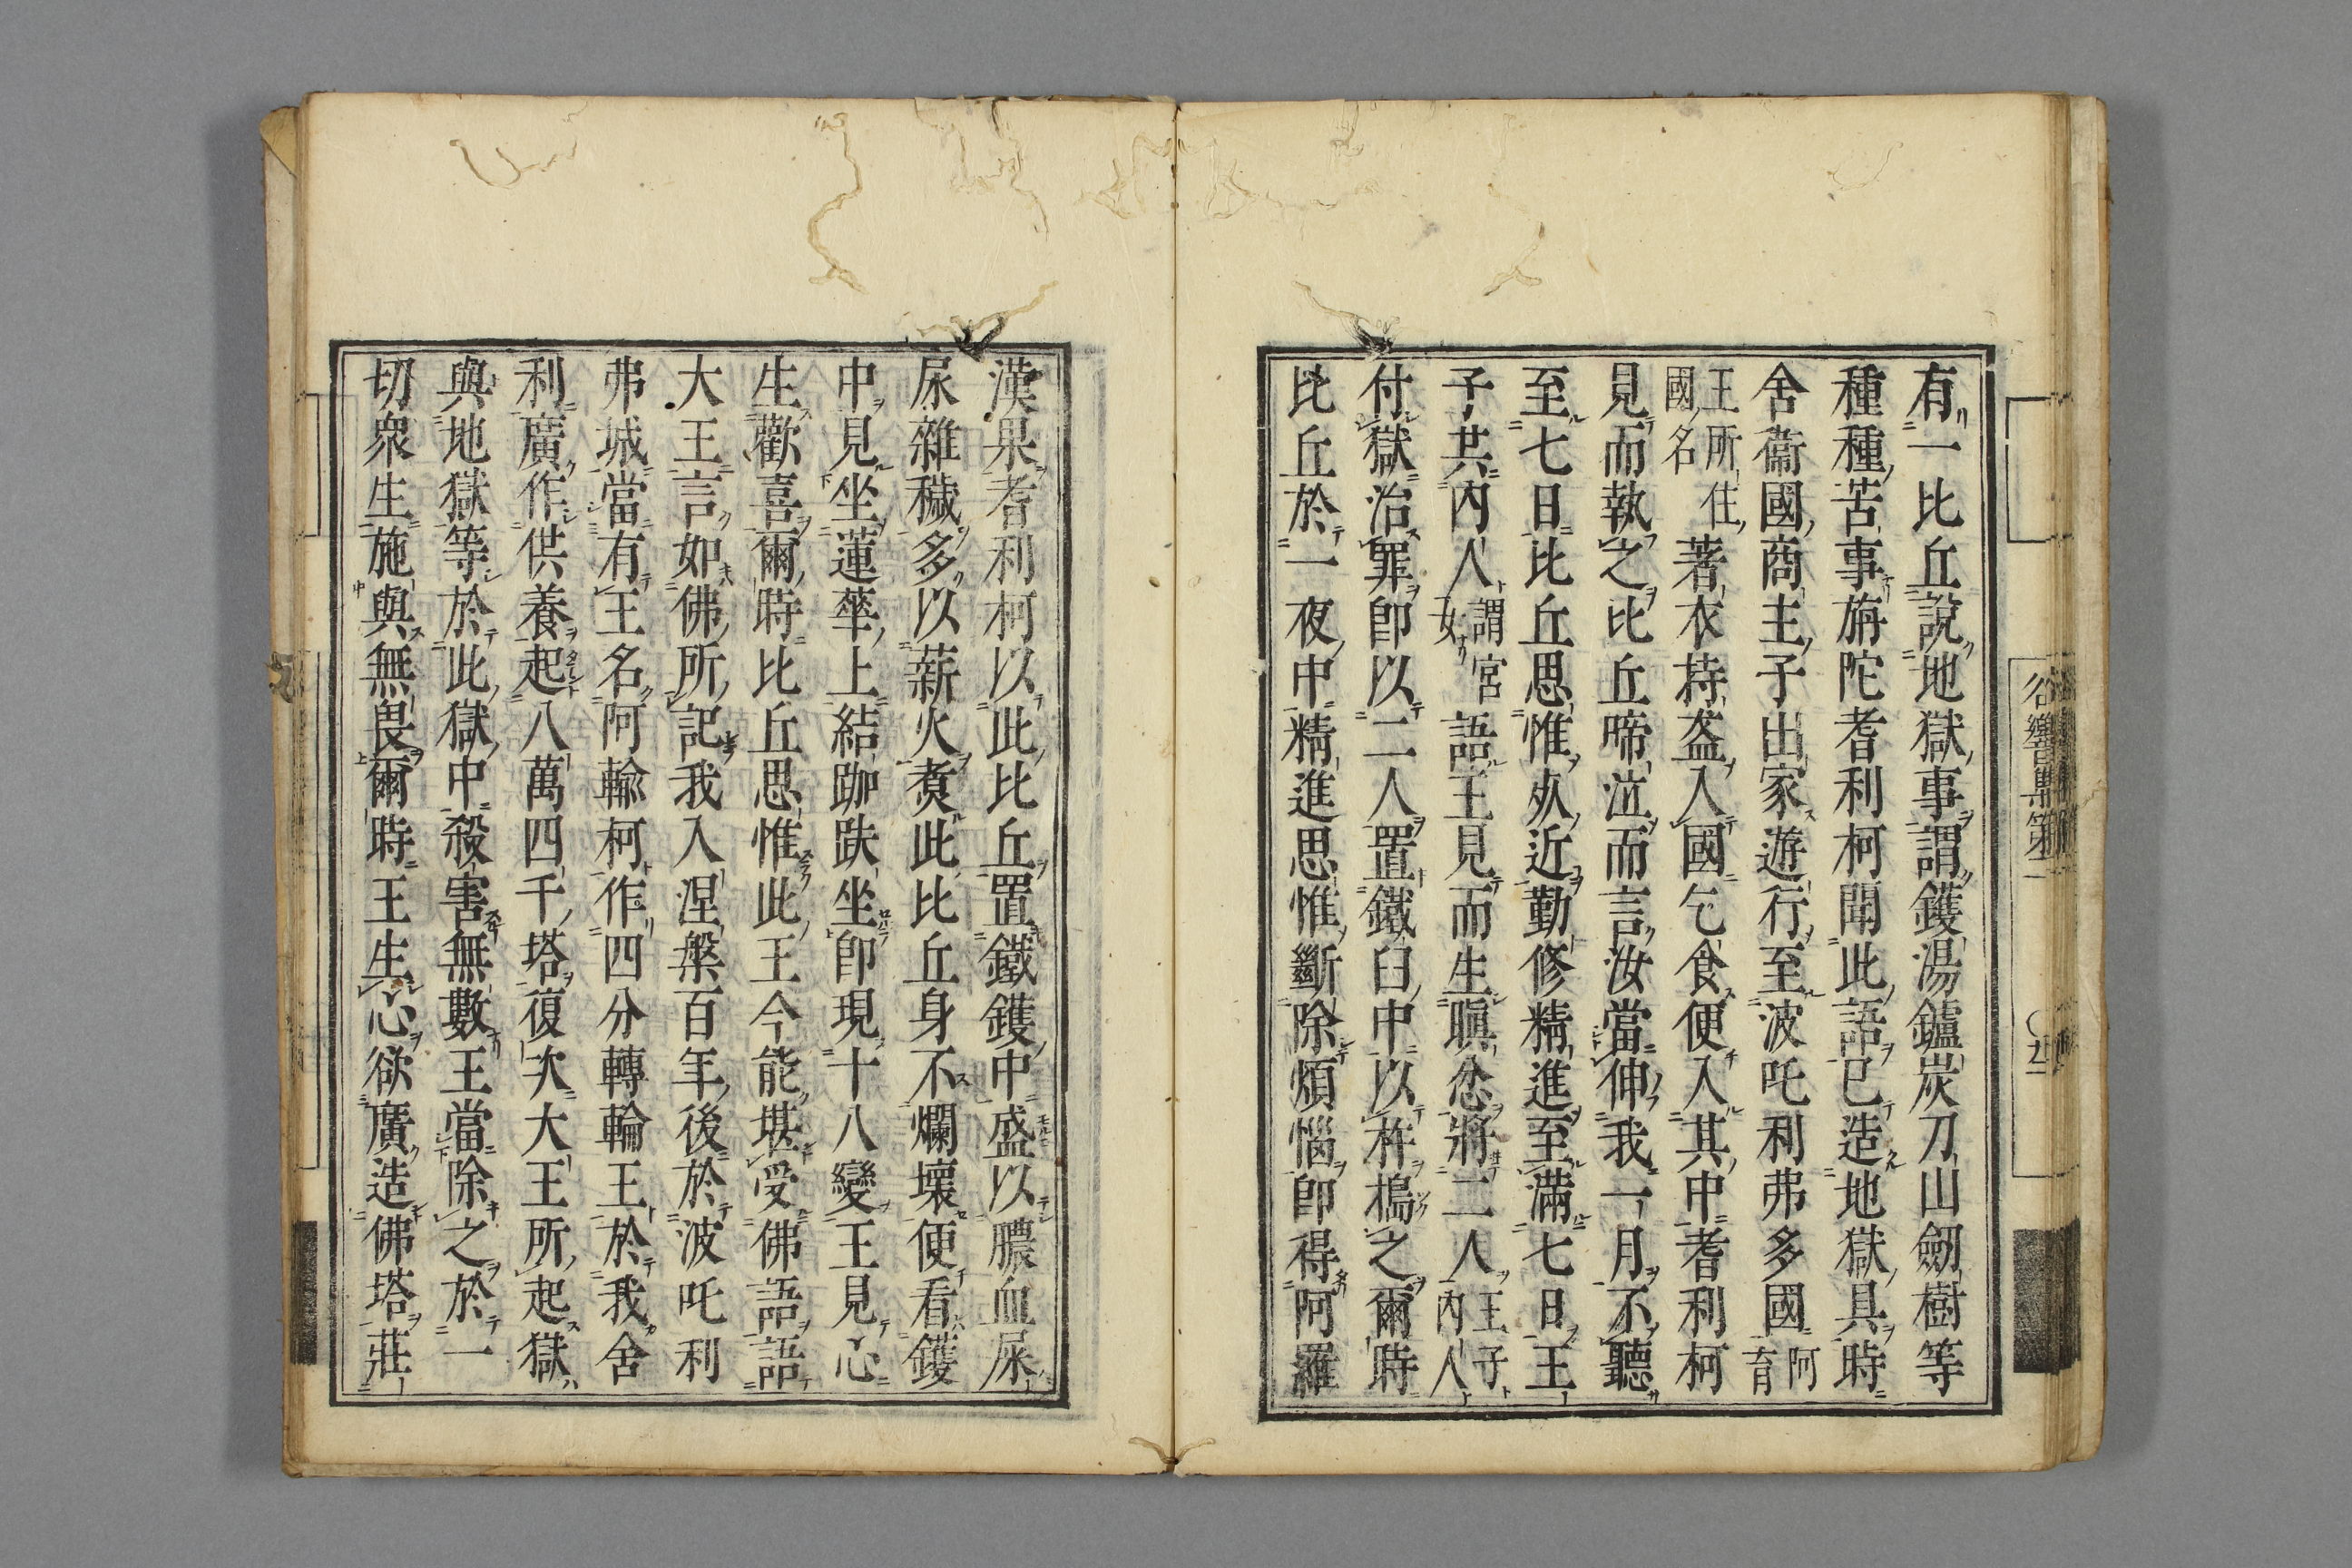 有一比丘說地獄事謂鑊湯鑪炭刀山劒樹等
種種苦事旃陀耆利柯聞此語已造地獄具時
舍衞國商主子出家遊行至波吒利弗多國阿育
王所住國名著衣持盔入國乞食便入其中耆利柯
見而執之比丘啼泣而言汝當伸我一月不聽
至七日比丘思惟死近勤修精進至滿七日王
子共内人謂宮女語王見而生瞋忿將二人王子内人
付獄治罪卽以二人置鐵臼中以杵搗之爾時
比丘於一夜中精進思惟斷除煩惱卽得阿羅
漢果耆利柯以此比丘置鐵鑊中盛以膿血屎
尿雜穢多以薪火煑此比丘身不爛壞便看鑊
中見坐蓮華上結跏趺坐卽現十八變王見心
生歡喜爾時比丘思惟此王今能堪受佛語語
大王言如佛所記我入涅槃百年後於波吒利
弗城當有王名阿輸柯作四分轉輪王於我舍
利廣作供養起八萬四千塔復次大王所起獄
與地獄等於此獄中殺害無數王當除之於一
切衆生施與無畏爾時王生心欲廣造佛塔莊
谷響集第一